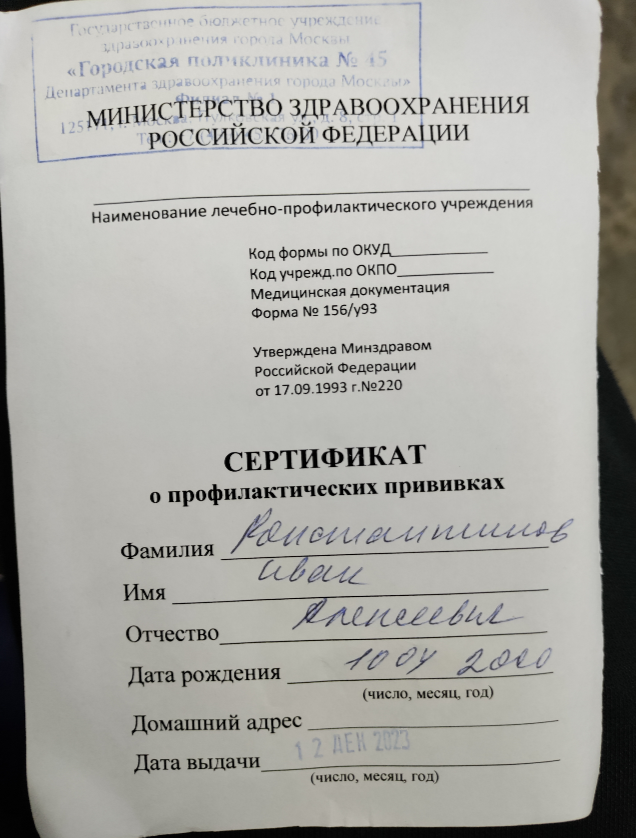 Государственное бюджетное учреждение
здравоохранения города Москвы
«Городская поликлиника № 45
Департамента здравоохранения города Москвы»
Филиал № 1
МИНИСТЕРСТВО ЗДРАВООХРАНЕНИЯ
г. Москва, д. 8, стр. 1
РОССИЙСКОЙ ФЕДЕРАЦИИ
Наименование лечебно-профилактического учреждения
Код формы по ОКУД
Код учрежд.по ОКПО
Медицинская документация
Форма № 156/у93
Утверждена Минздравом
Российской Федерации
от 17.09.1993 г.№220
СЕРТИФИКАТ
о профилактических прививках
Фамилия Константинов
Имя Иван
Отчество Алексеевич
Дата рождения 10 04 2000
(число, месяц, год)
Домашний адрес
Дата выдачи 12 ДЕК 2023
(число, месяц, год)